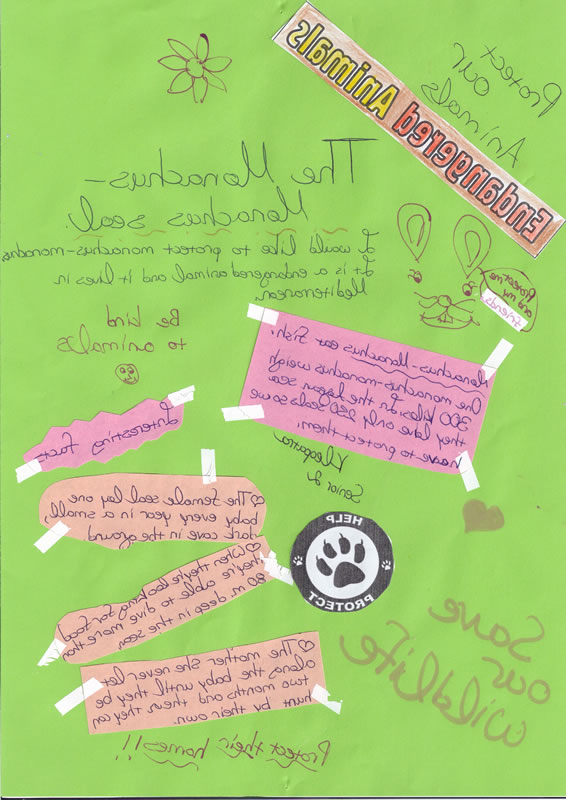 Protect
our
Animals
Endangered Animals
The Monachus-
Monachus seal.
I would like to protect monachus-monachus.
It is a endangered animal and it lives in
Mediterranean.
Protect me
and my
friends
Be kind
to animals
Monachus-Monachus eat fish.
One monachus-monachus weigh
300 kilos. In the Aegean sea
they only 250 seals so we
have to protect them!
Kleopatra
Senior
Interesting facts
The female seal lay one
baby every year in a small,
dark cave in the ground
When they're looking for food
they're able to dive more than
80 m. deep in the sea.
The mother she never let
alone the baby until they be
two months and then they can
hunt by their own.
Protect their homes!!!
HELP
PROTECT
Save
our
wildlife